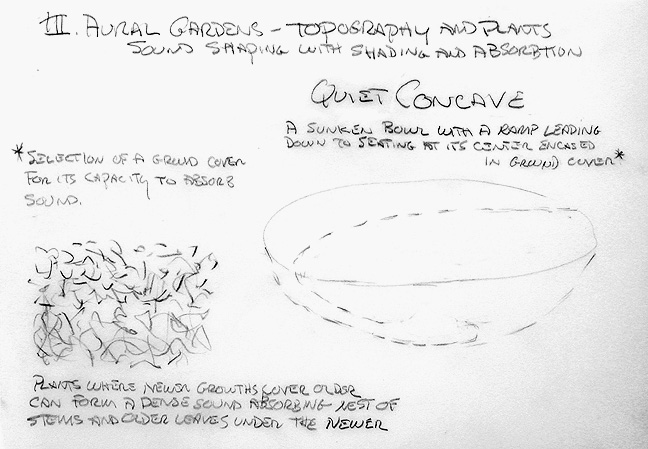 III. AURAL GARDENS - TOPOGRAPHY AND PLANTS
SOUND SHAPING WITH SHADING AND ABSORBTION
QUIET CONCAVE
A SUNKEN BOWL WITH A RAMP LEADING
DOWN TO SEATING AT ITS CENTER ENCASED
IN GROUND COVER*
*SELECTION OF A GROUND COVER
FOR ITS CAPACITY TO ABSORB
SOUND.
PLANTS WHERE NEWER GROWTHS COVER OLDER
CAN FORM A DENSE SOUND ABSORBING NEST OF
STEMS AND OLDER LEAVES UNDER THE NEWER